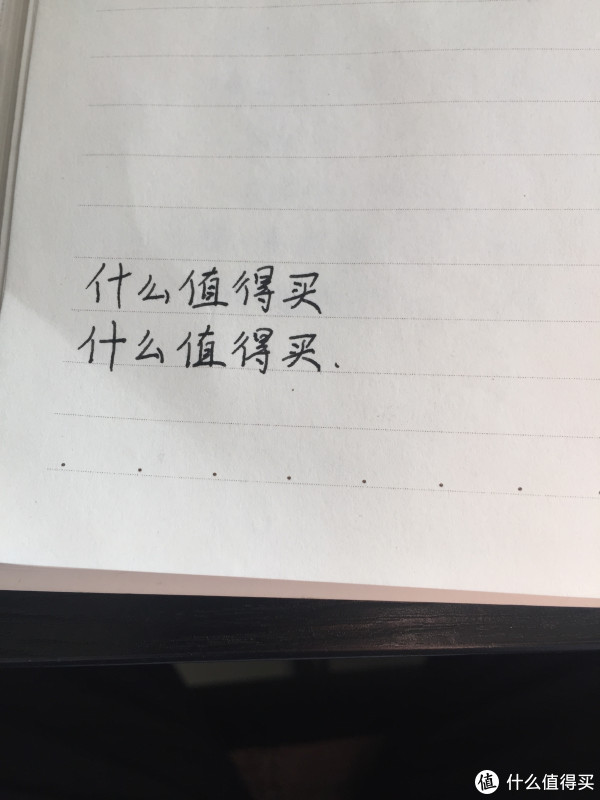 什么值得买
什么值得买.
值 什么值得买